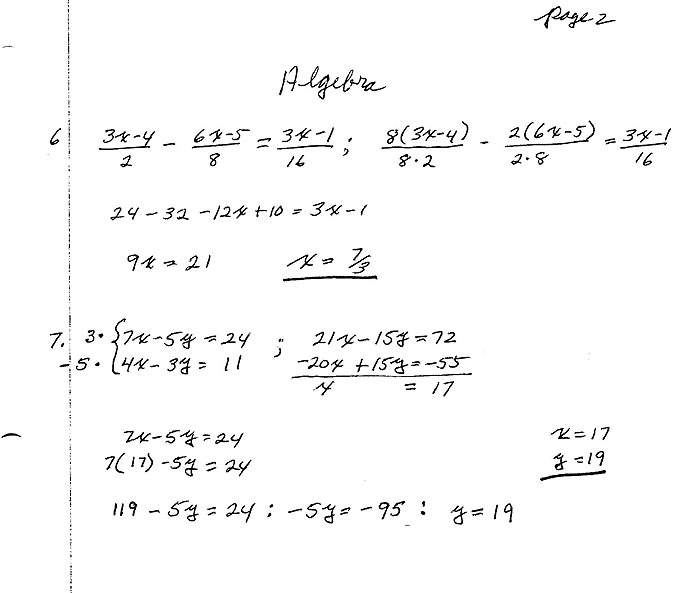 page 2
Algebra
6 (3x-4)/2 - (6x-5)/8 = (3x-1)/16 ; 8(3x-4)/(8·2) - 2(6x-5)/(2·8) = (3x-1)/16
24 - 32 - 12x + 10 = 3x - 1
9x = 21 x = 7/3
7. 3· {7x - 5y = 24 ; 21x - 15y = 72
-5· {4x - 3y = 11 -20x + 15y = -55
x = 17
7x - 5y = 24 x = 17
7(17) - 5y = 24 y = 19
119 - 5y = 24 : -5y = -95 : y = 19